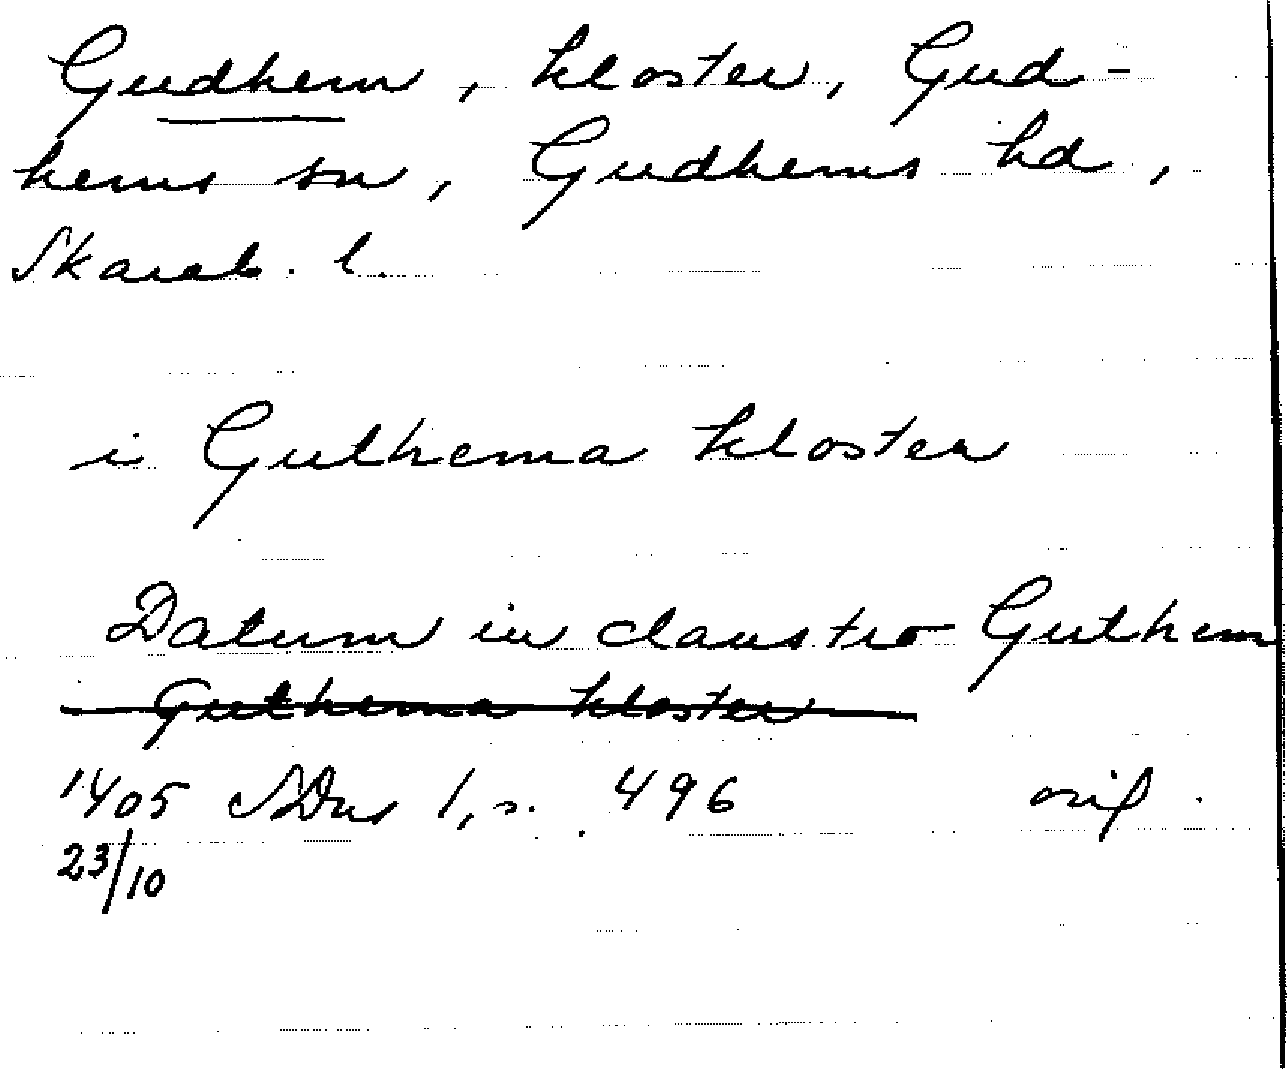 Gudhem, kloster, Gud-
hems sn, Gudhems hd,
Skarab. l.
i Guthema kloster
Datum in claustro Guthem
Guthema kloster
1405 SDns 1, s. 496 orig.
23/10